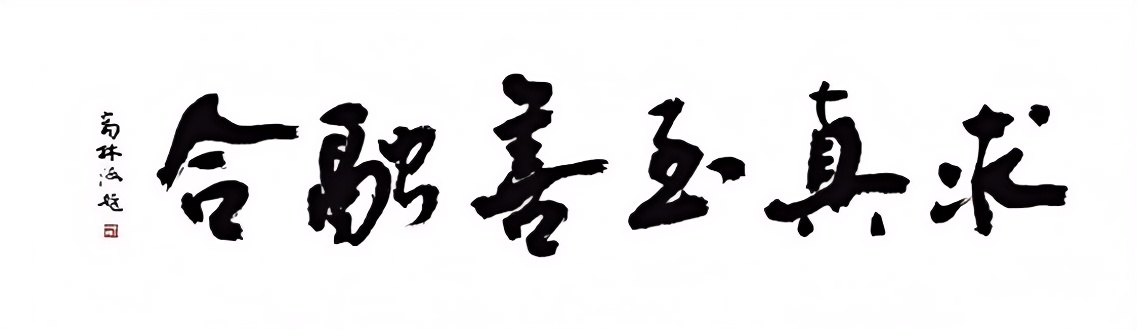 求真至善融合
高林海题